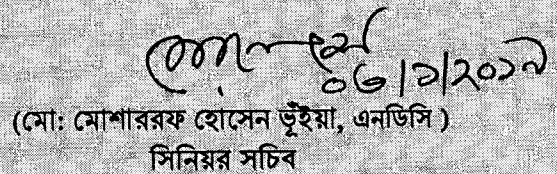 ০৬|১|২০১৯
(মো: মোশাররফ হোসেন ভূঁইয়া, এনডিসি )
সিনিয়র সচিব